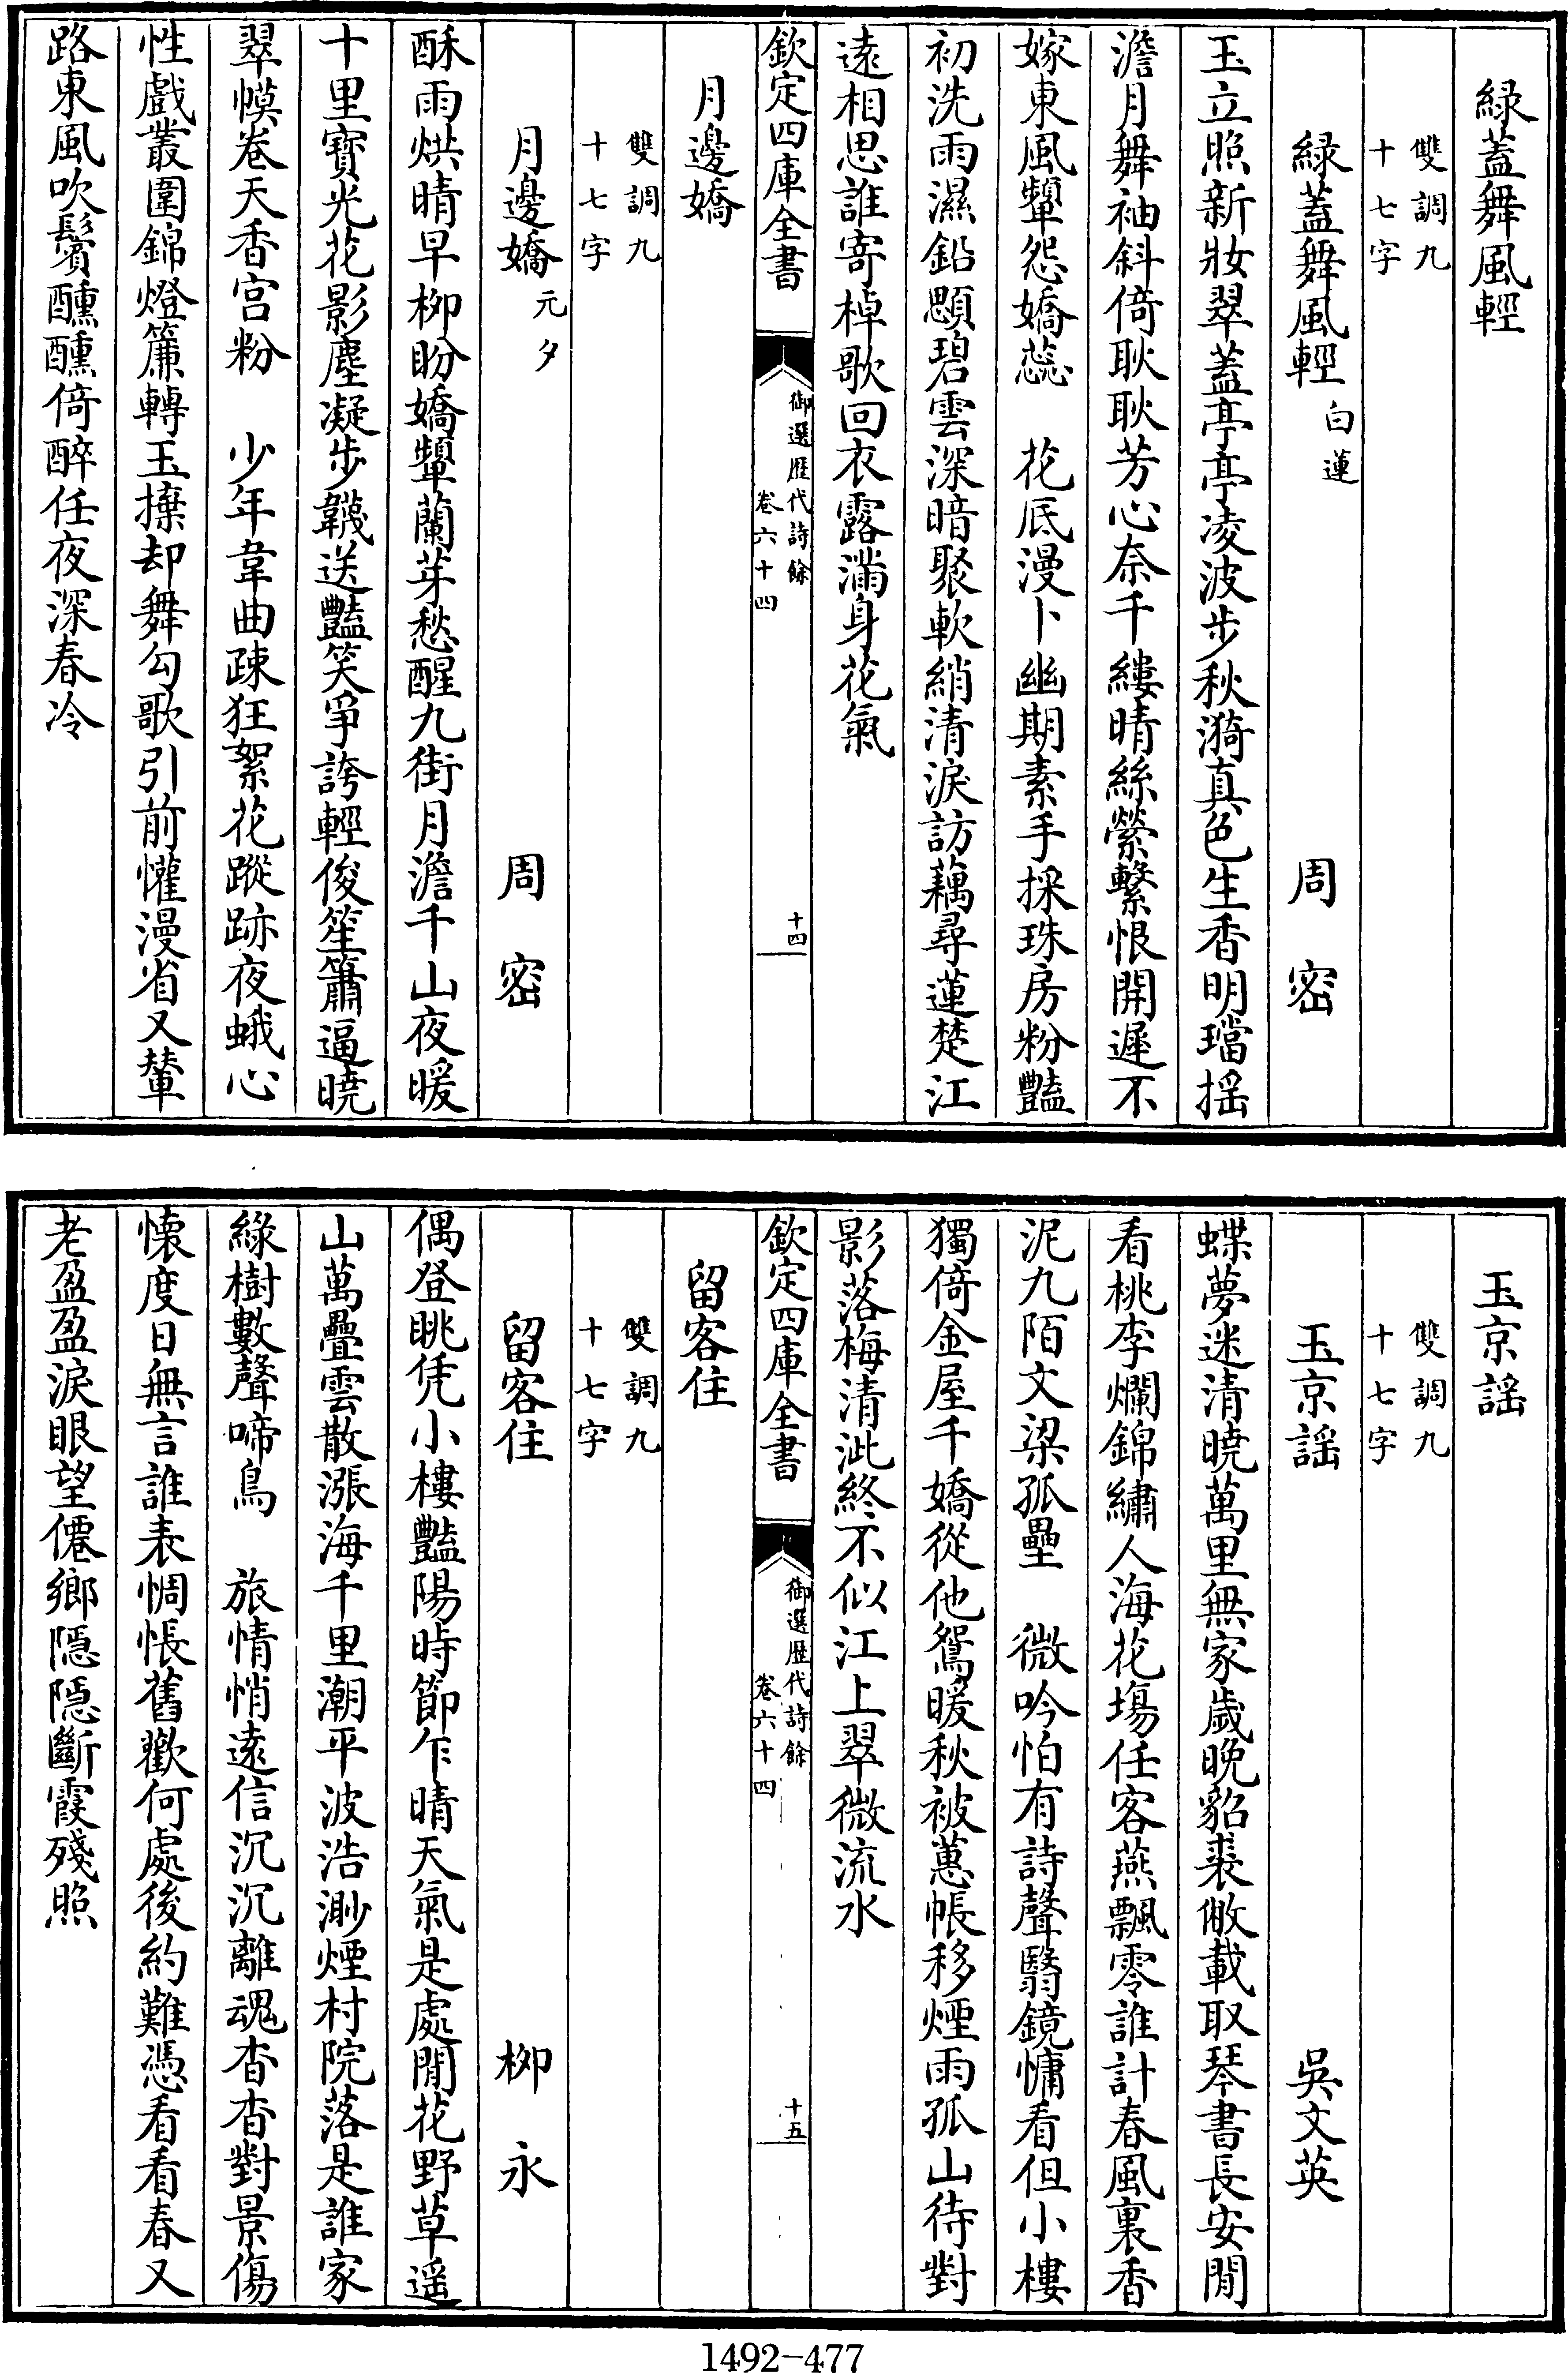 綠蓋舞風輕
雙調九
十七字
綠蓋舞風輕 白蓮 周密
玉立照新妝翠蓋亭亭凌波步秋漪真色生香明璫揺
澹月舞袖斜倚耿耿芳心奈千縷晴絲縈繫恨開遲不
嫁東風顰怨嬌蕊 花底漫卜幽期素手採珠房粉豔
初洗雨濕鉛顋碧雲深暗聚軟綃清淚訪藕尋蓮楚江
逺相思誰寄棹歌回衣露滿身花氣
欽定四庫全書
御選歴代詩餘
卷六十四
十四
月邊嬌
雙調九
十七字
月邊嬌 元夕 周密
酥雨烘晴早柳盼嬌顰蘭芽愁醒九街月澹千山夜暖
十里寶光花影塵凝步韈送豔笑爭誇輕俊笙簫逼曉
翠幙卷天香宮粉 少年韋曲疎狂絮花蹤跡夜蛾心
性戲叢圍錦燈簾轉玉拚却舞勾歌引前懽漫省又輦
路東風吹鬢醺醺倚醉任夜深春冷
玉京謡
雙調九
十七字
玉京謡 吳文英
蝶夢迷清曉萬里無家歲晚貂裘敝載取琴書長安閒
看桃李爛錦繡人海花塲任客燕飄零誰計春風裏香
泥九陌文梁孤壘 微吟怕有詩聲翳鏡慵看但小樓
獨倚金屋千嬌從他鴛暖秋被蕙帳移煙雨孤山待對
影落梅清泚終不似江上翠微流水
欽定四庫全書
御選歴代詩餘
卷六十四
十五
留客住
雙調九
十七字
留客住 柳永
偶登眺凭小樓豔陽時節乍晴天氣是處閒花野草遥
山萬疊雲散漲海千里潮平波浩渺煙村院落是誰家
綠樹數聲啼鳥 旅情悄逺信沉沉離魂杳杳對景傷
懷度日無言誰表惆悵舊歡何處後約難憑看看春又
老盈盈淚眼望僊鄉隠隠斷霞殘照
1492-477